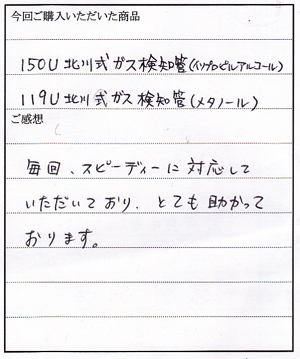 今回ご購入いただいた商品
150U 北川式ガス検知管(イソプロピルアルコール)
119U 北川式ガス検知管(メタノール)
ご感想
毎回、スピーディーに対応して
いただいており、とても助かって
おります。